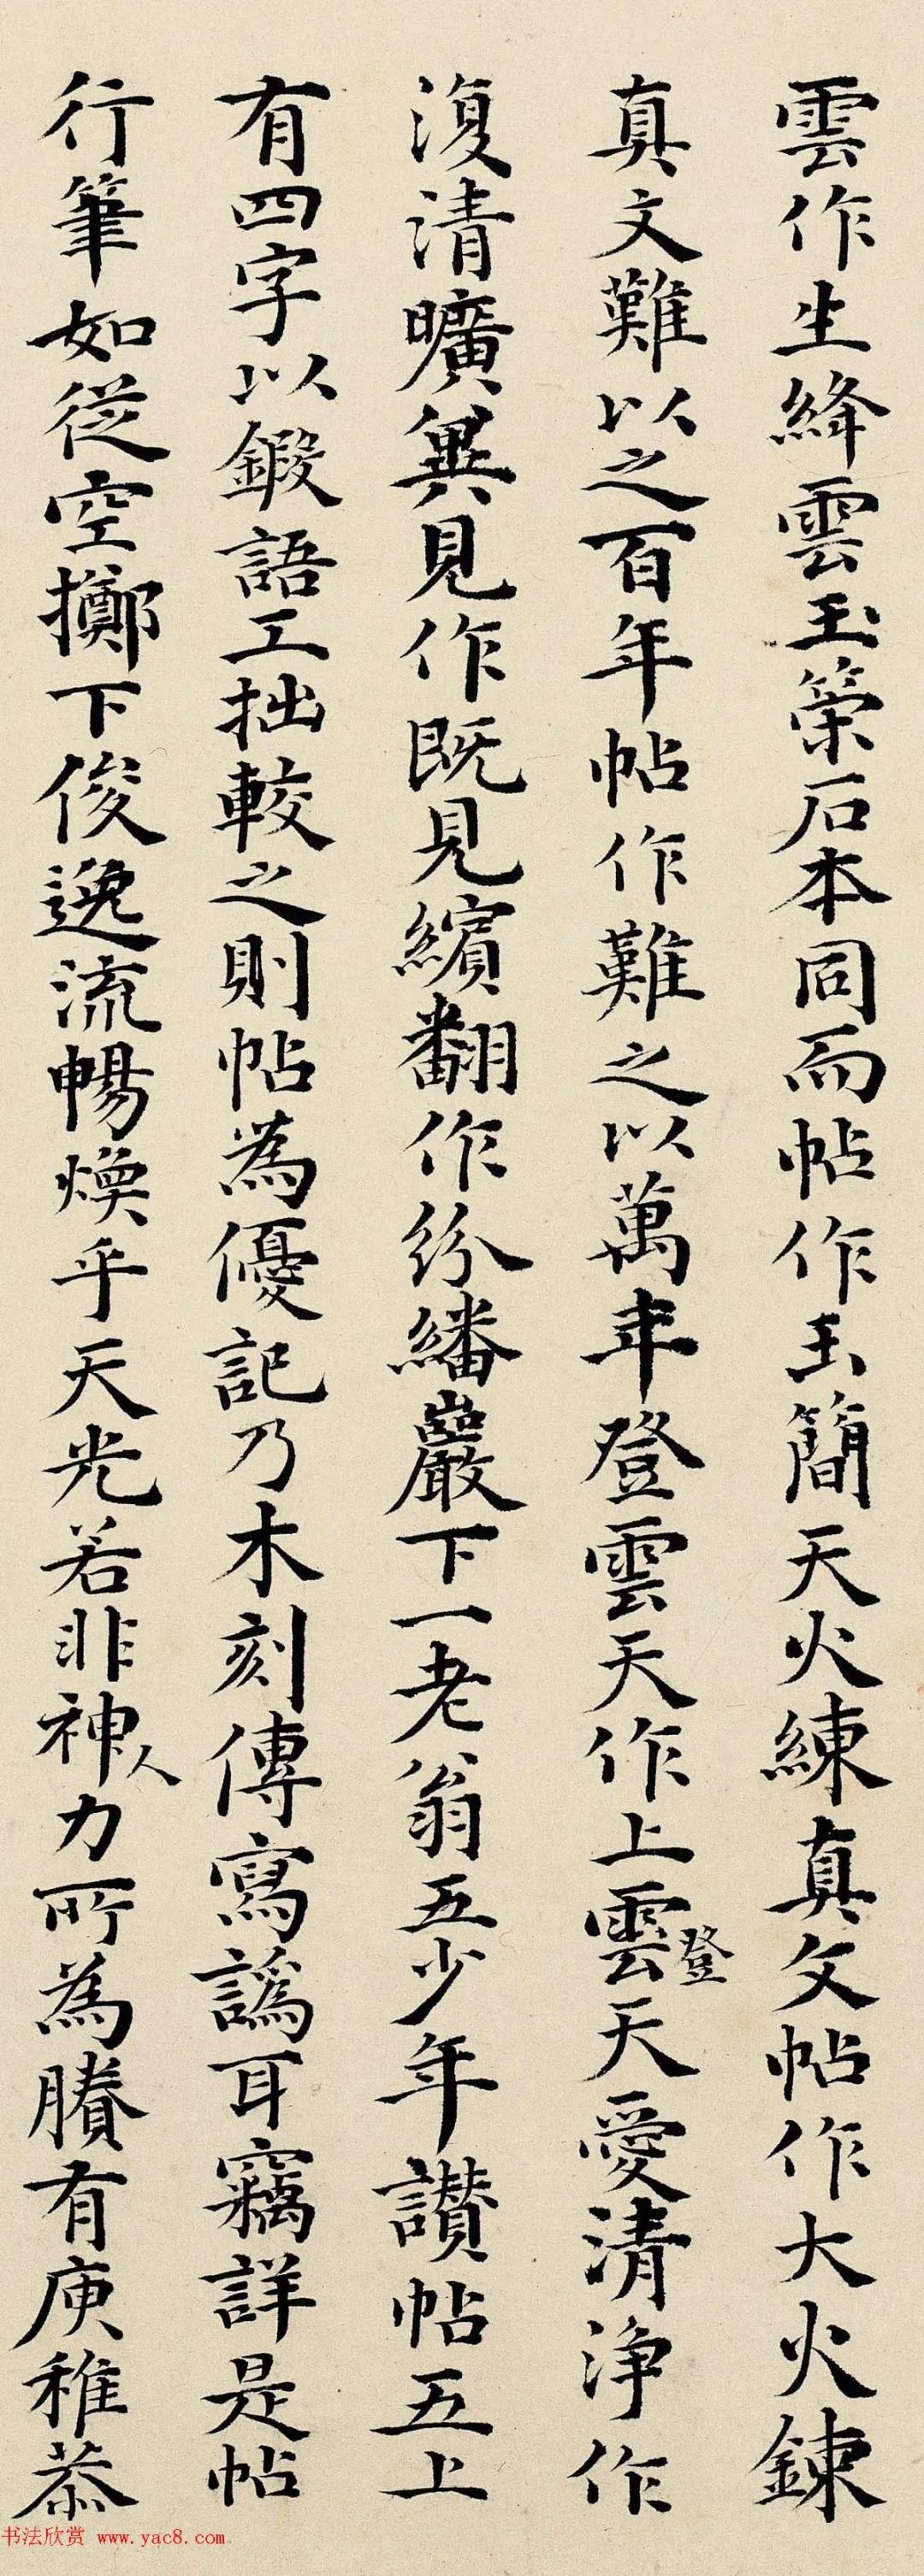 雲作生絳雲玉策石本同而帖作玉簡天火練真文帖作大火鍊
真文難以之百年帖作難之以萬年登雲天作上雲登天愛清浄作
復清曠異見作既見繽翻作紛繙巖下一老翁五少年讚帖五上
有四字以鍛語工拙較之則帖為優記乃木刻傳寫譌耳竊詳是帖
行筆如從空擲下俊逸流暢煥乎天光若非神人力所為賸有庾稚恭
书法欣赏 www.yac8.com